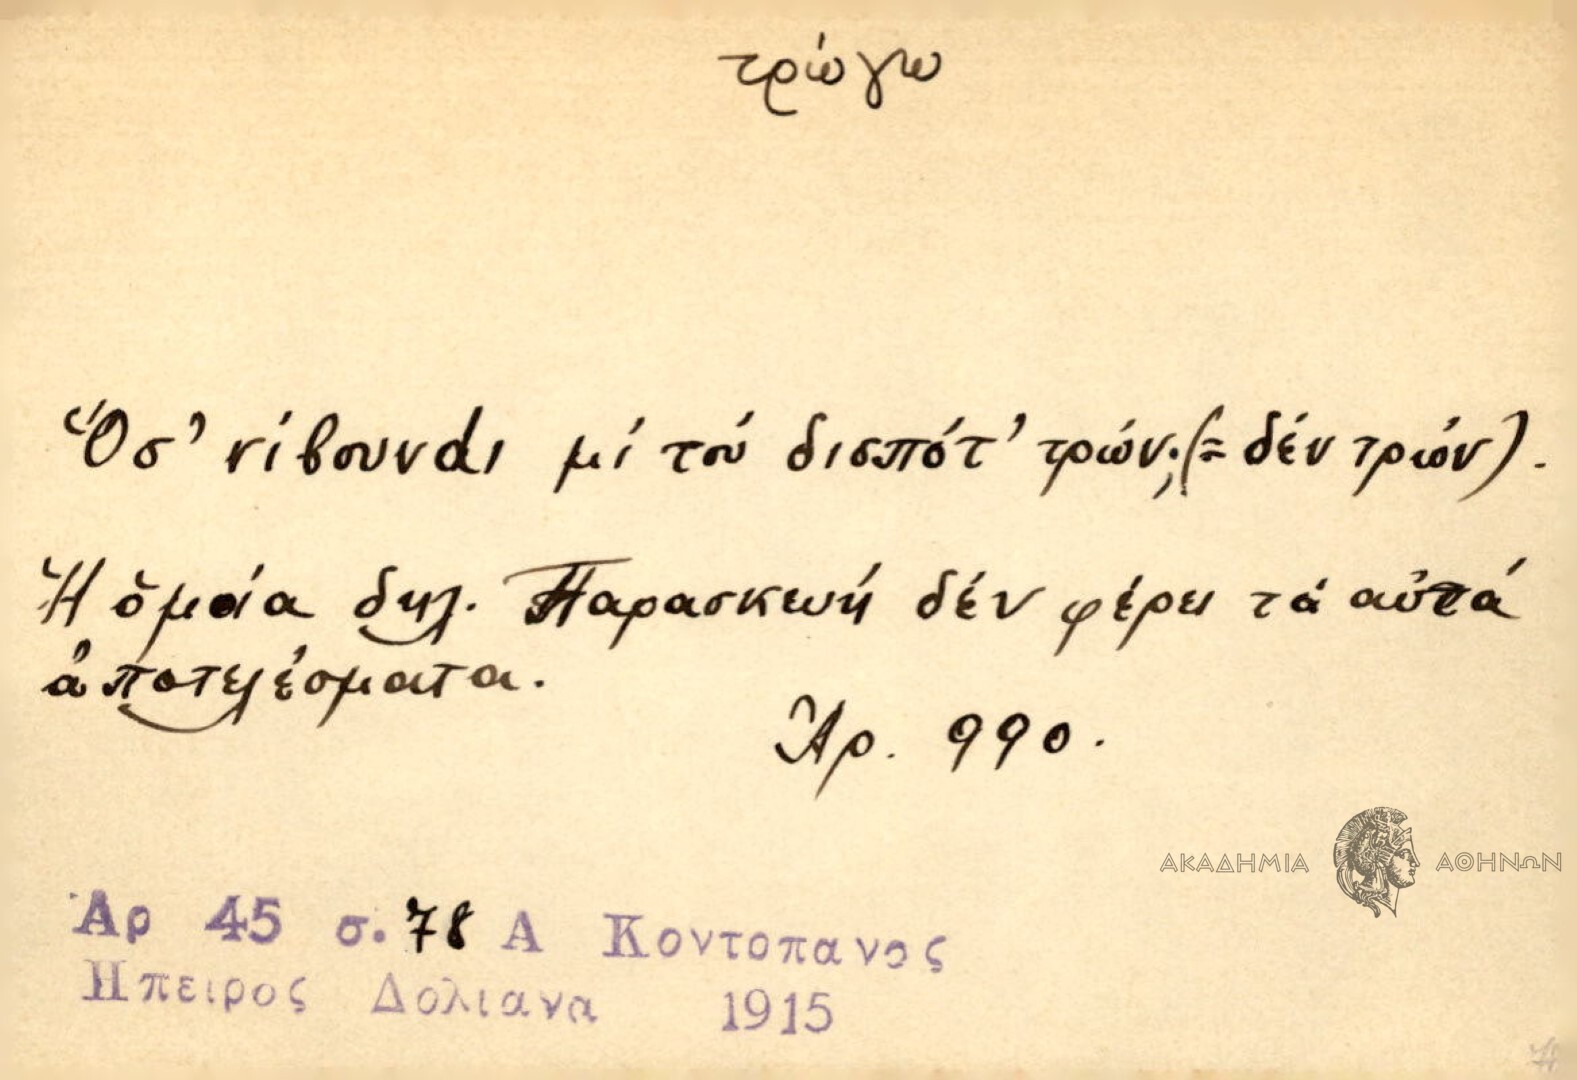 τρώγω
Ὅσ' νίβουνdι μί τού δισπότ' τρών; (= δέν τρών).
Ἡ ὁμοία δηλ. Παρασκευή δέν φέρει τά αὐτά
ἀποτελέσματα.
Ἀρ. 990.
ΑΚΑΔΗΜΙΑ ΑΘΗΝΩΝ
Αρ 45 σ. 78 Α Κοντοπανος
Ηπειρος Δολιανα 1915